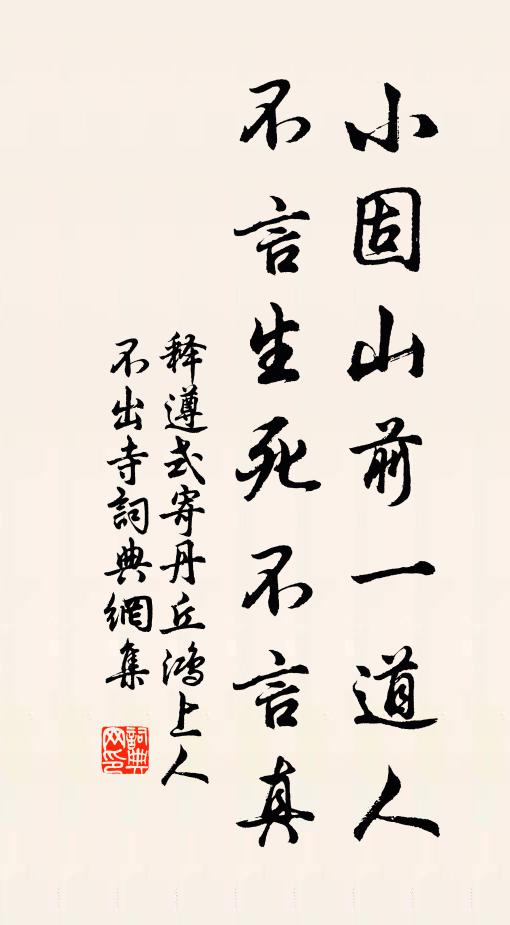 小固山前一道人
不言生死不言真
释遵式寄丹丘鸿上人
不出寺詞典網集
詞典网印